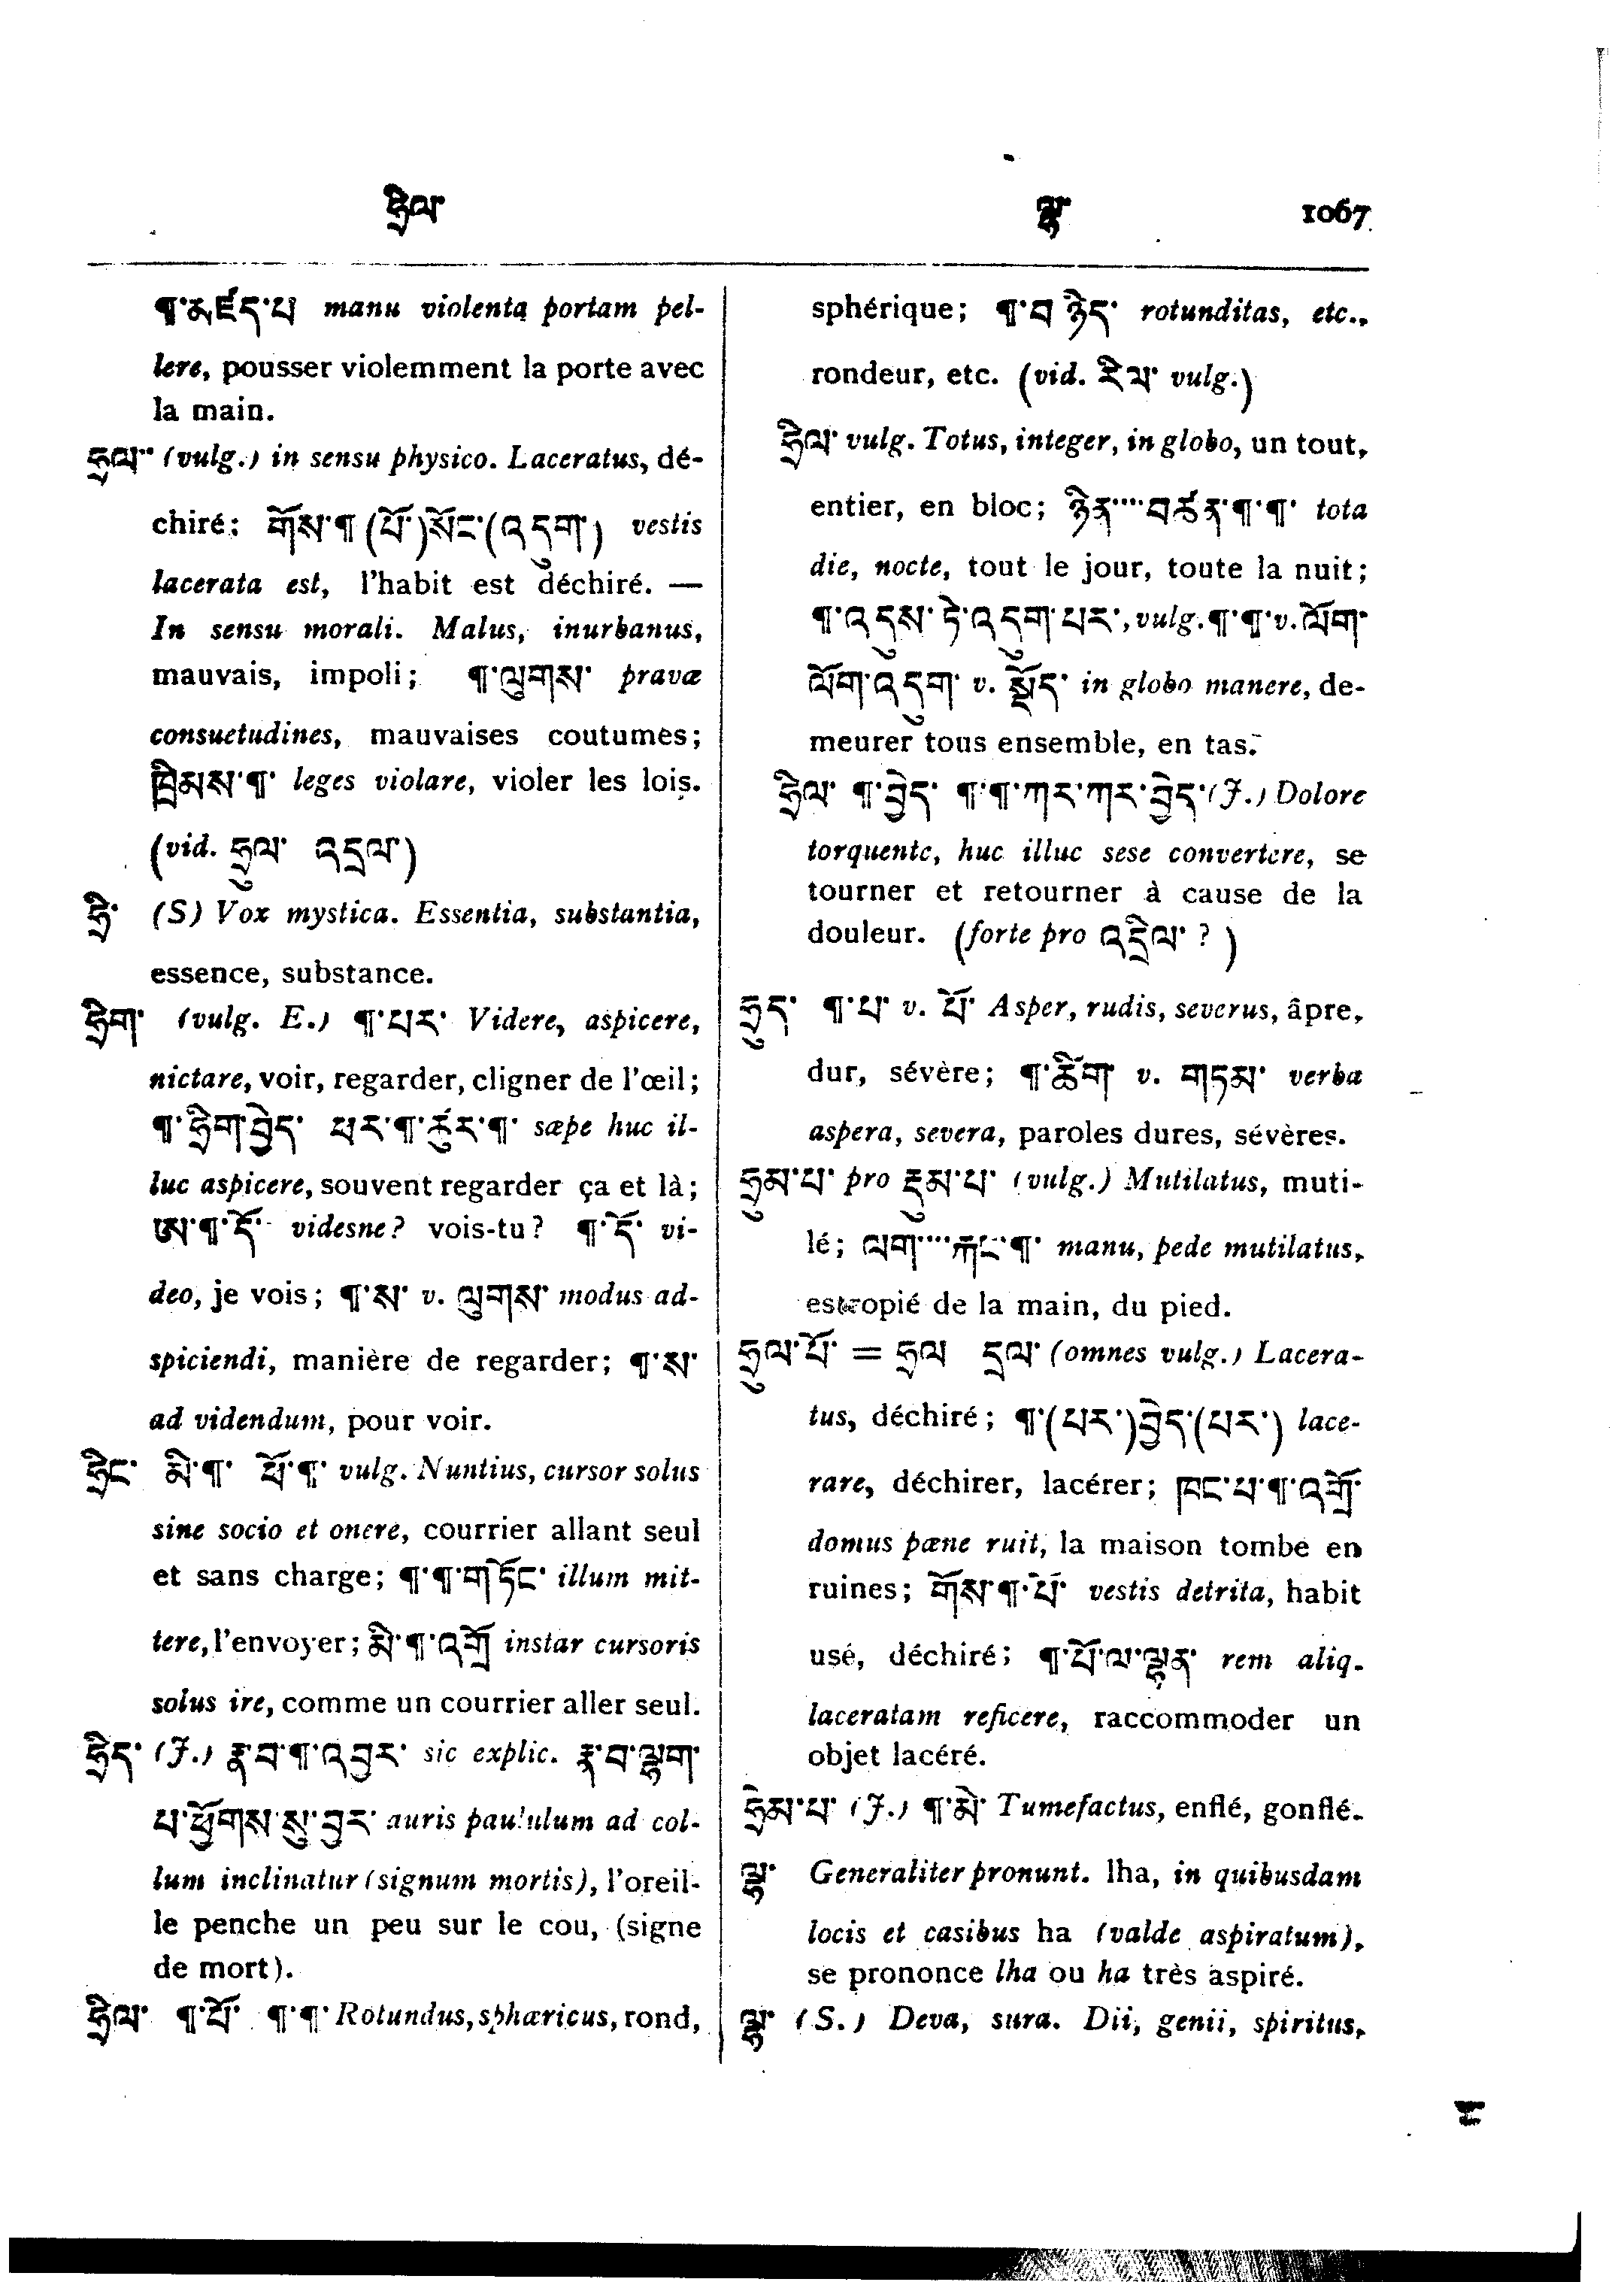 ཧྲིལ་ ལྷ་ 1067
¶་མཛད་པ manu violenta portam pel-
lere, pousser violemment la porte avec
la main.
ཧྲལ་·· (vulg.) in sensu physico. Laceratus, dé-
chiré; གོས་¶ (པོ་)སོང་(འདུག་) vestis
lacerata est, l'habit est déchiré. —
In sensu morali. Malus, inurbanus,
mauvais, impoli; ¶་ལུགས་ pravæ
consuetudines, mauvaises coutumes;
ཁྲིམས་¶་ leges violare, violer les lois.
(vid. ཧྲུལ་ འདྲལ་)
ཧྲི་ (S) Vox mystica. Essentia, substantia,
essence, substance.
ཧྲིག་ (vulg. E.) ¶་པར་ Videre, aspicere,
nictare, voir, regarder, cligner de l'œil;
¶་ཧྲིག་བྱེད་ པར་¶་ཚུར་¶་ sæpe huc il-
luc aspicere, souvent regarder ça et là;
ཨ་¶་དོ་ videsne? vois-tu? ¶་དོ་ vi-
deo, je vois; ¶་ས་ v. ལུགས་ modus ad-
spiciendi, manière de regarder; ¶་ས་
ad videndum, pour voir.
ཧྲིང་ མི་¶་ ཕོ་¶་ vulg. Nuntius, cursor solus
sine socio et onere, courrier allant seul
et sans charge; ¶་¶་གཏོང་ illum mit-
tere, l'envoyer; མི་¶་འགྲོ instar cursoris
solus ire, comme un courrier aller seul.
ཧྲིད་ (J.) རྣ་བ་¶་འབྱར་ sic explic. རྣ་བ་ལྷག་
པ་ཕྱོགས་སུ་བྱར་ auris paululum ad col-
lum inclinatur (signum mortis), l'oreil-
le penche un peu sur le cou, (signe
de mort).
ཧྲིལ་ ¶་པོ་ ¶་¶་ Rotundus, sphæricus, rond,
sphérique; ¶་བ ཉིད་ rotunditas, etc.,
rondeur, etc. (vid. རིལ་ vulg.)
ཧྲིལ་ vulg. Totus, integer, in globo, un tout,
entier, en bloc; ཉིན་···· བཚན་¶་¶་ tota
die, nocte, tout le jour, toute la nuit;
¶་འདུས་ཏེ་འདུག་པར་, vulg. ¶་¶་ v. ལོག་
ལོག་འདུག་ v. སྡོད་ in globo manere, de-
meurer tous ensemble, en tas.
ཧྲིལ་ ¶་བྱེད་ ¶་¶་ཀར་ཀར་བྱེད་ (J.) Dolore
torquente, huc illuc sese convertere, se
tourner et retourner à cause de la
douleur. (forte pro འདྲིལ་ ? )
ཧྲུད་ ¶་པ་ v. པོ་ Asper, rudis, severus, âpre,
dur, sévère; ¶་ཚིག་ v. གཏམ་ verba
aspera, severa, paroles dures, sévères.
ཧྲུམ་པ་ pro རྡུམ་པ་ (vulg.) Mutilatus, muti-
lé; ལག་···· རྐང་¶་ manu, pede mutilatus,
estropié de la main, du pied.
ཧྲུལ་པོ་ = ཧྲལ དྲལ་ (omnes vulg.) Lacera-
tus, déchiré; ¶་(པར་)བྱེད་(པར་) lace-
rare, déchirer, lacérer; ཁང་པ་¶་འགྲོ་
domus pæne ruit, la maison tombe en
ruines; གོས་¶་པོ་ vestis detrita, habit
usé, déchiré; ¶་པོ་ལ་ལྷན་ rem aliq.
laceratam reficere, raccommoder un
objet lacéré.
ཧྲེམ་པ་ (J.) ¶་མེ་ Tumefactus, enflé, gonflé.
ལྷ་ Generaliter pronunt. lha, in quibusdam
locis et casibus ha (valde aspiratum),
se prononce lha ou ha très aspiré.
ལྷ་ (S.) Deva, sura. Dii, genii, spiritus,